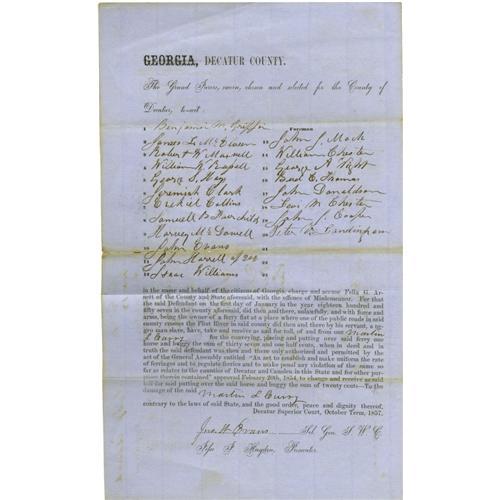 GEORGIA, DECATUR COUNTY.
The Grand Jurors, sworn, chosen and selected for the County of
Decatur, to-wit:
1 Benjamin M. Griffin Foreman
James L. McElveen John J. Mock
Robert W. Maxwell William Chester
William J. George A. Wight
George S. May Bird E. Thomas
Jeremiah Clark John Donaldson
Ezekiel Collins Levi M. Chester
Samuell B. Fairchild John J. Cooper
Harvey McDowell Peter B. Landingham
John Evans
John Harrell of 200
Isaac Williams
in the name and behalf of the citizens of Georgia, charge and accuse Felix G. Ar-
nett of the County and State aforesaid, with the offence of Misdemeanor. For that
the said Defendant on the first day of January in the year eighteen hundred and
fifty seven in the county aforesaid, did then and there, unlawfully, and with force and
arms, being the owner of a ferry flat at a place where one of the public roads in said
county crosses the Flint River in said county did then and there by his servant, a ne-
gro man slave, take and receive as and for toll, of and from one Martin
L Curry for the conveying, placing and putting over said ferry one
horse and buggy the sum of thirty seven and one half cents, when in deed and in
truth the said defendant was then and there only authorized and permitted by the
act of the General Assembly entitled "An act to establish and make uniform the rate
of ferriages and to regulate ferries and to make penal any violation of the same so
far as relates to the counties of Decatur and Camden in this State and for other pur-
poses therein contained" approved February 20th, 1854, to charge and receive as said
toll for said putting over the said horse and buggy the sum of twenty cents—To the
damage of the said Martin L Curry
contrary to the laws of said State, and the good order, peace and dignity thereof.
Decatur Superior Court, October Term, 1857.
Jno. W. Evans Sol. Gen. S. W. C.
F Hayden, Prosecutor.